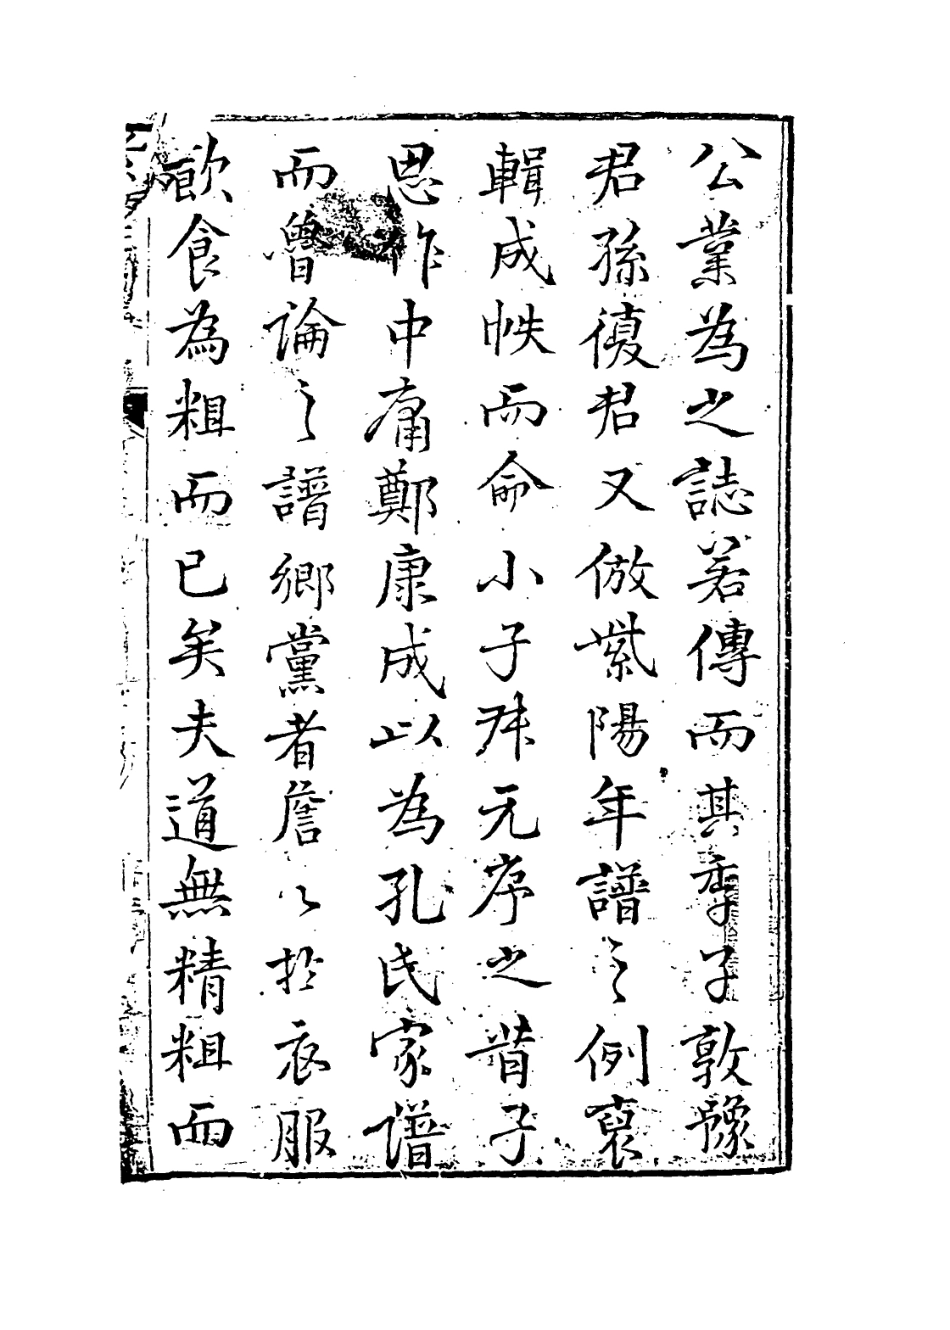 公業為之誌若傳而其季子敦豫
君孫復君又倣紫陽年譜之例裒
輯成帙而命小子拜元序之昔子
思作中庸鄭康成以為孔氏家譜
而曾論之譜鄉黨者詹〻於衣服
飲食為粗而已矣夫道無精粗而